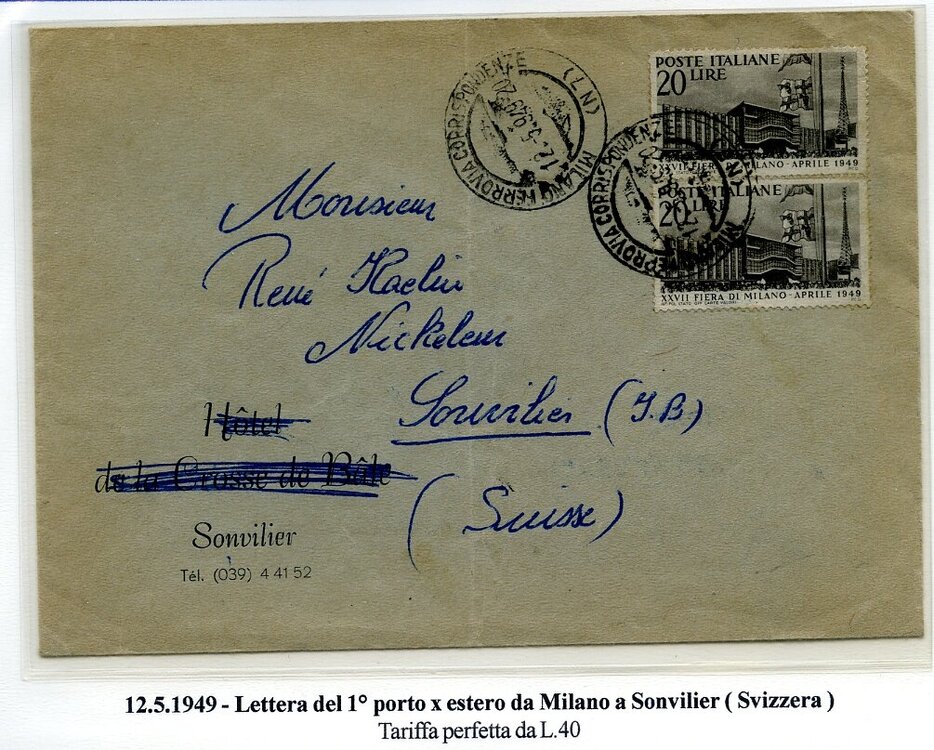 POSTE ITALIANE
20 LIRE
XXVII FIERA DI MILANO - APRILE 1949
POSTE ITALIANE
20 LIRE
XXVII FIERA DI MILANO - APRILE 1949
MILANO FERROVIA CORRISPONDENZE (LN)
12.5.949
MILANO FERROVIA CORRISPONDENZE (LN)
Monsieur
René Haelin
Nickeleur
Sonvilier (J.B.)
(Suisse)
Hôtel
de la Crosse de Bâle
Sonvilier
Tél. (039) 4 41 52
12.5.1949 - Lettera del 1° porto x estero da Milano a Sonvilier ( Svizzera )
Tariffa perfetta da L.40